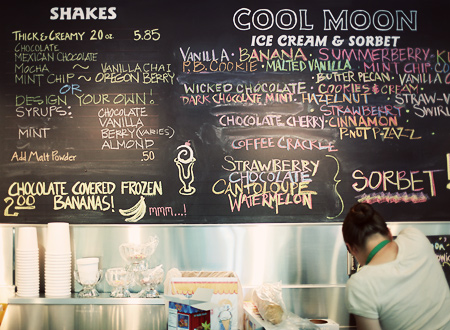 SHAKES
THICK & CREAMY 20 oz 5.85
CHOCOLATE
MEXICAN CHOCOLATE
MOCHA ~ VANILLA CHAI
MINT CHIP ~ OREGON BERRY
OR
DESIGN YOUR OWN!
SYRUPS: CHOCOLATE
VANILLA
MINT BERRY (VARIES)
ALMOND
Add Malt Powder .50
CHOCOLATE COVERED FROZEN
2.00 BANANAS! MMM...!
COOL MOON
ICE CREAM & SORBET
VANILLA · BANANA · SUMMERBERRY · K
P.B. COOKIE · MALTED VANILLA · MINT CHIP
BUTTER PECAN · VANILLA C
WICKED CHOCOLATE · COOKIES & CREAM
DARK CHOCOLATE MINT · HAZELNUT STRAW
CHOCOLATE CHERRY · STRAWBERRY SWIRL
CINNAMON
P·NUT P·ZAZZ
COFFEE CRACKLE
STRAWBERRY
CHOCOLATE
CANTOLOUPE
WATERMELON
SORBET!